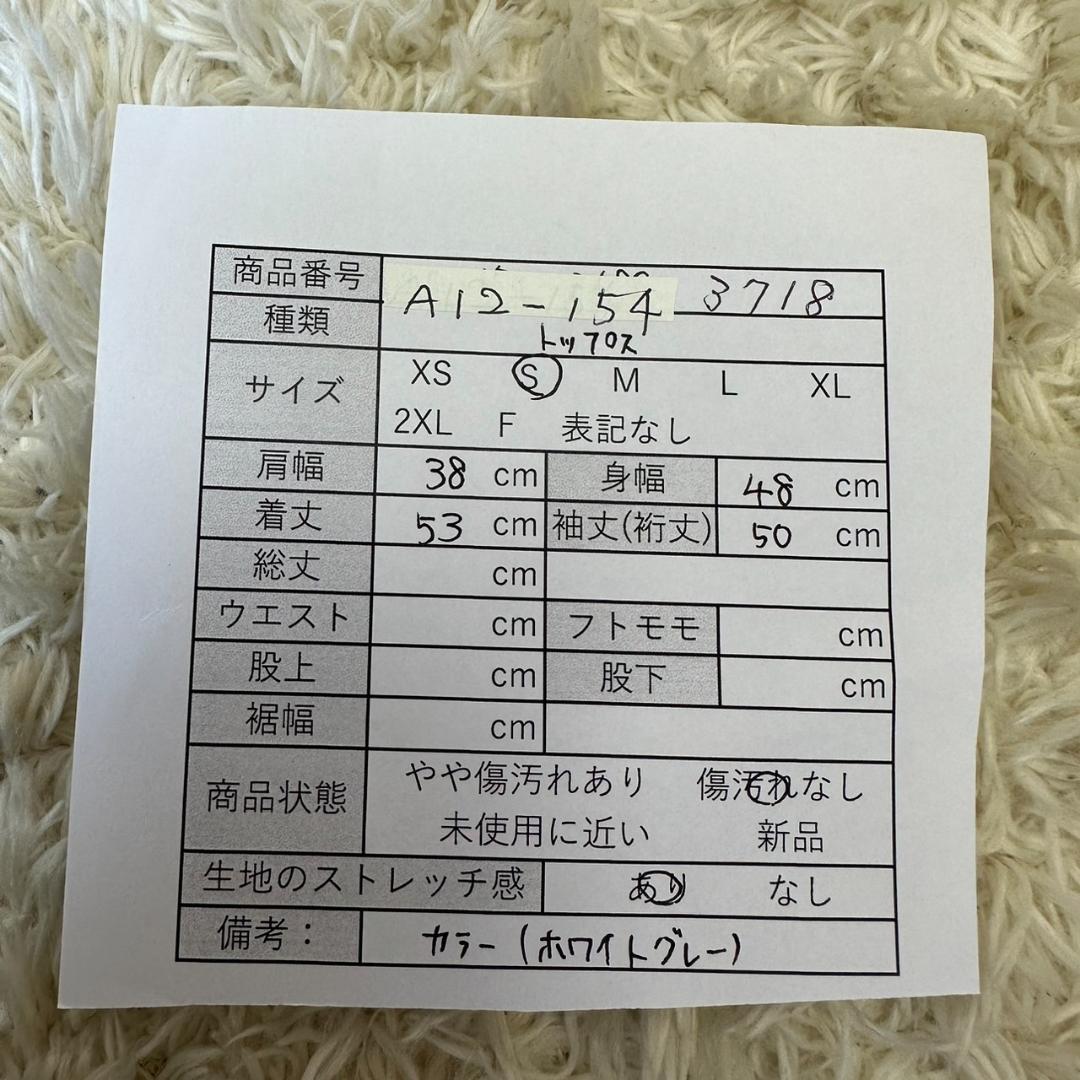 商品番号 A12-154 3718
種類 トップス
サイズ XS S M L XL
2XL F 表記なし
肩幅 38 cm 身幅 48 cm
着丈 53 cm 袖丈(裄丈) 50 cm
総丈 cm
ウエスト cm フトモモ cm
股上 cm 股下 cm
裾幅 cm
商品状態 やや傷汚れあり 傷汚れなし
未使用に近い 新品
生地のストレッチ感 あり なし
備考： カラー(ホワイトグレー)